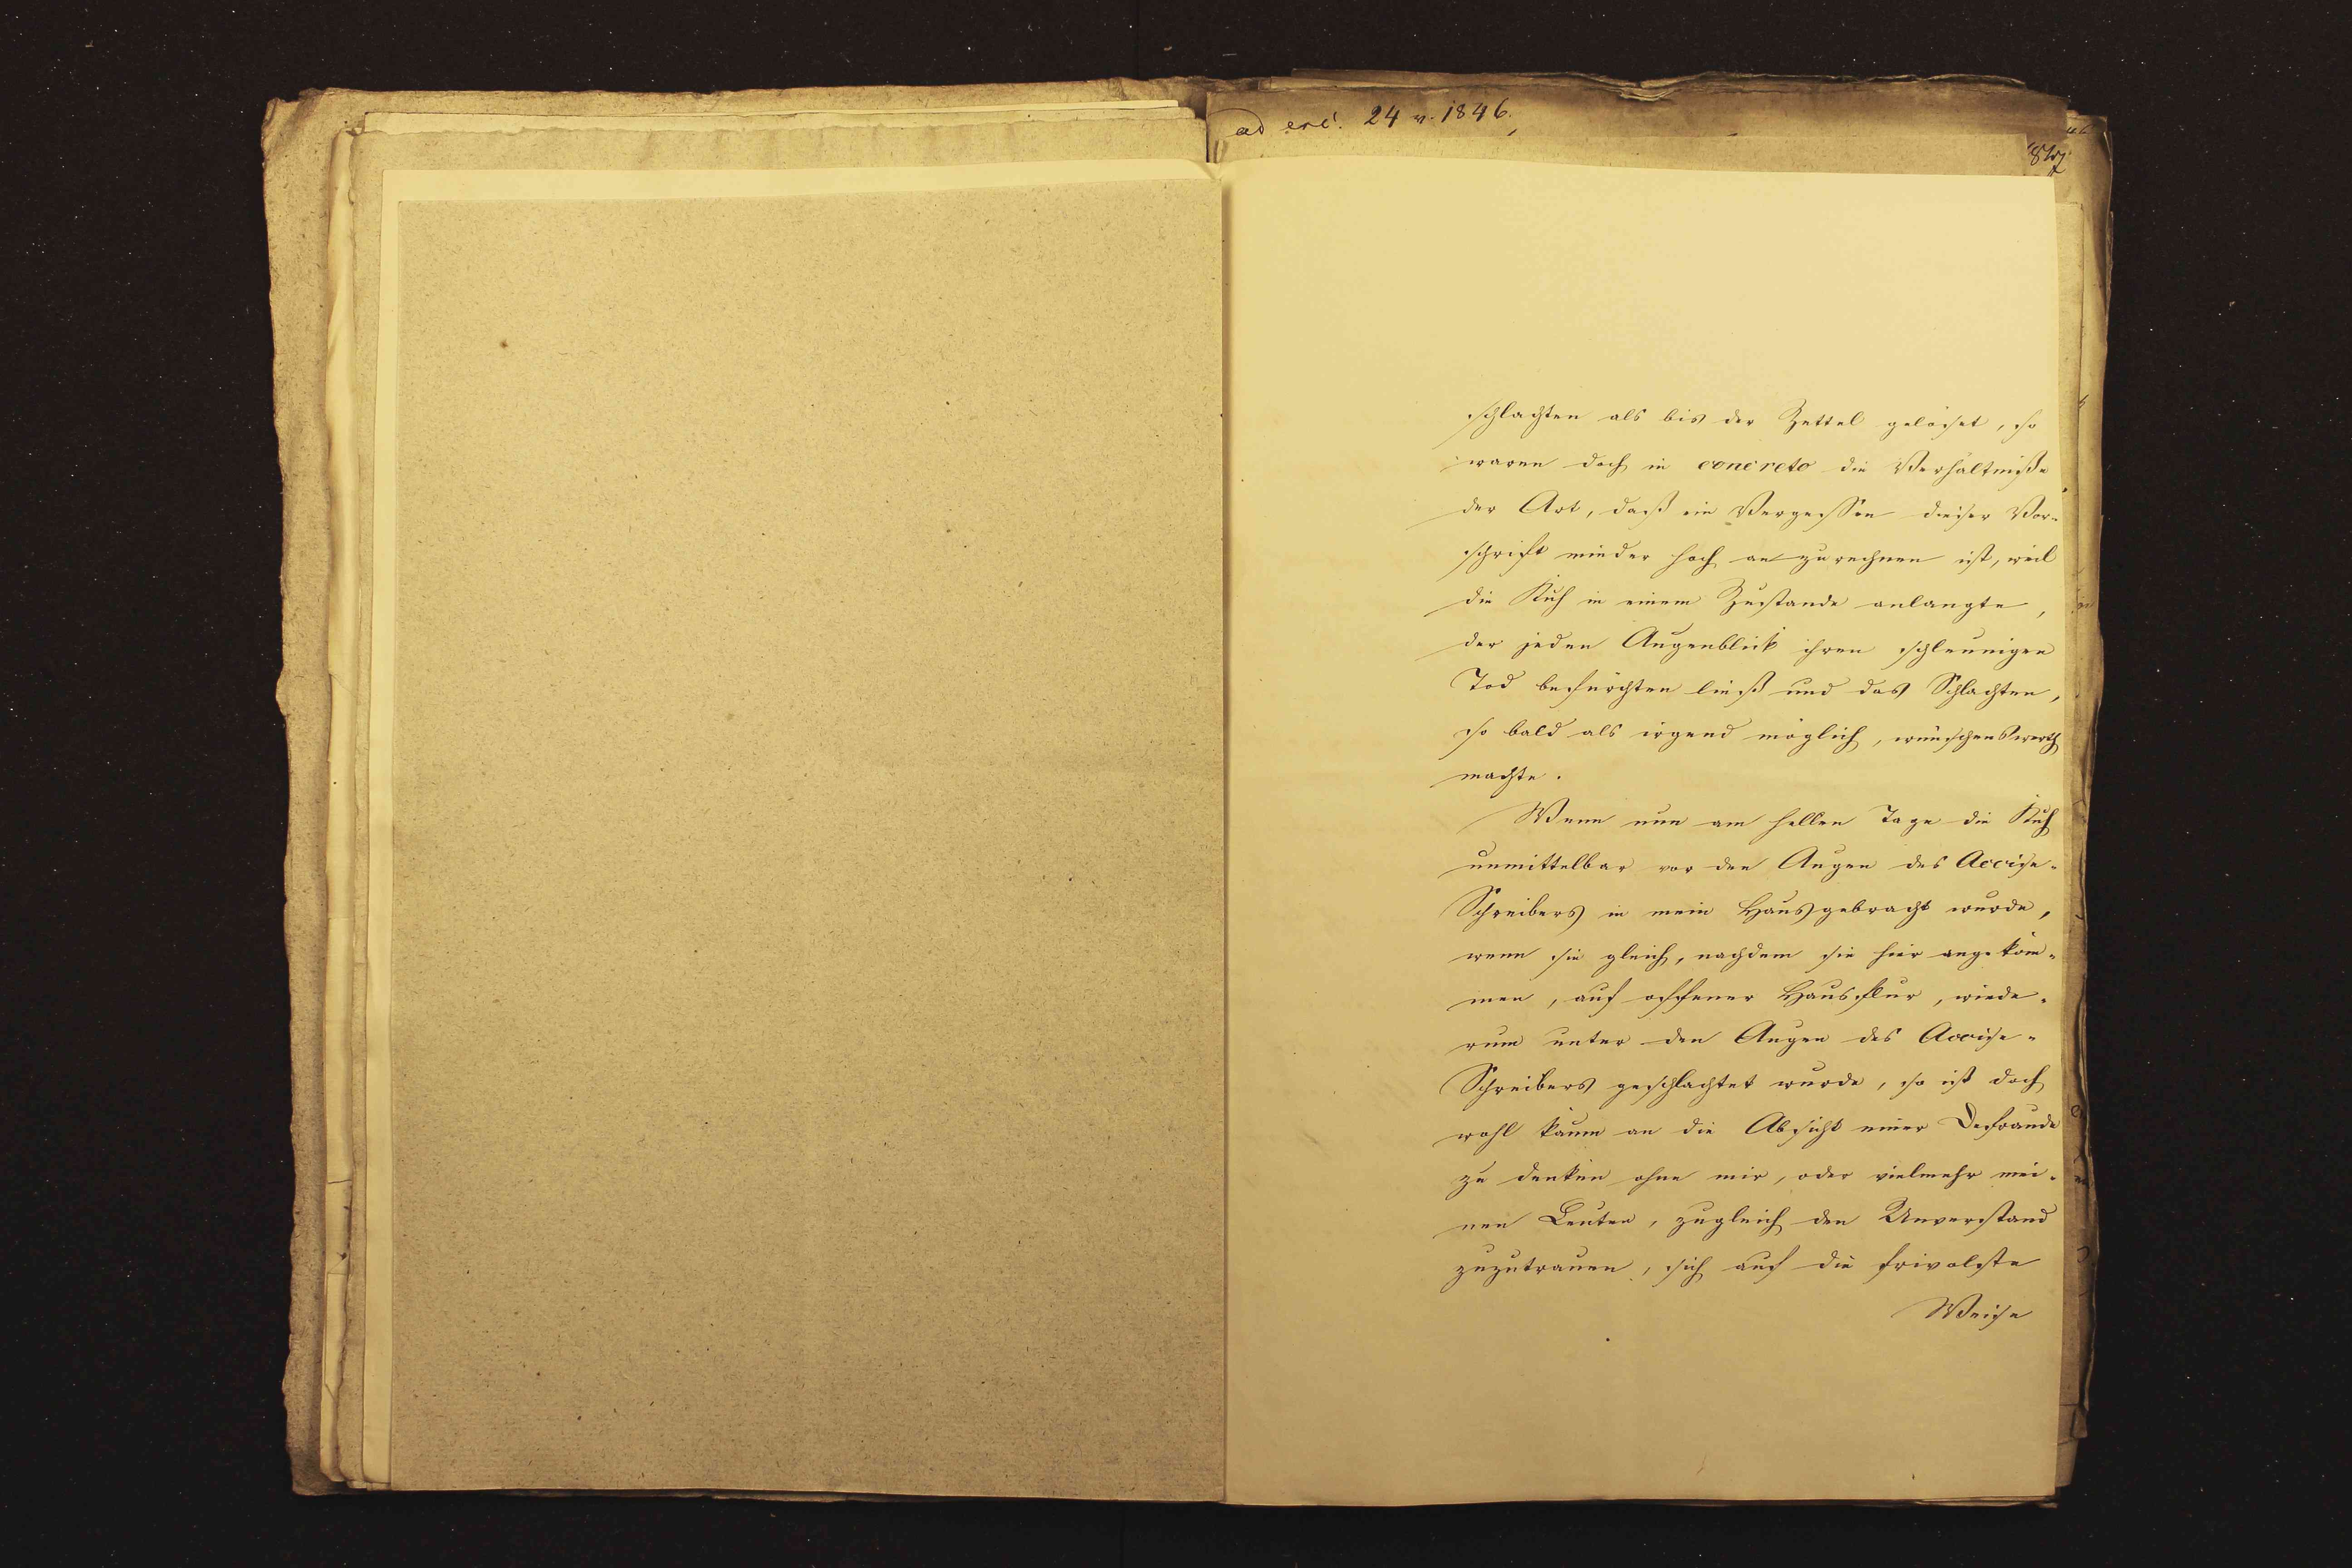 ad exc. 24 v. 1846.
schlachten als bis der Zettel gelöset, so
waren doch in concreto die Verhältniße
der Art, daß ein Vergessen dieser Vor-
schrift minder hoch anzurechnen ist, weil
die Kuh in einem Zustande anlangte,
der jeden Augenblick ihren schleunigen
Tod befürchten ließ und das Schlachten,
so bald als irgend möglich, wünschenswerth
machte.
Wenn nun am hellen Tage die Kuh
unmittelbar vor den Augen des Accise-
Schreibers in mein Haus gebracht wurde,
wenn sie gleich, nachdem sie hier angekom-
men, auf offener Hausflur, wiede-
rum unter den Augen des Accise-
Schreibers geschlachtet wurde, so ist doch
wohl kaum an die Absicht einer Defraude
zu denken ohne mir, oder vielmehr mei-
nen Leuten, zugleich den Unverstand
zuzutrauen, sich auf die frivolste
Weise